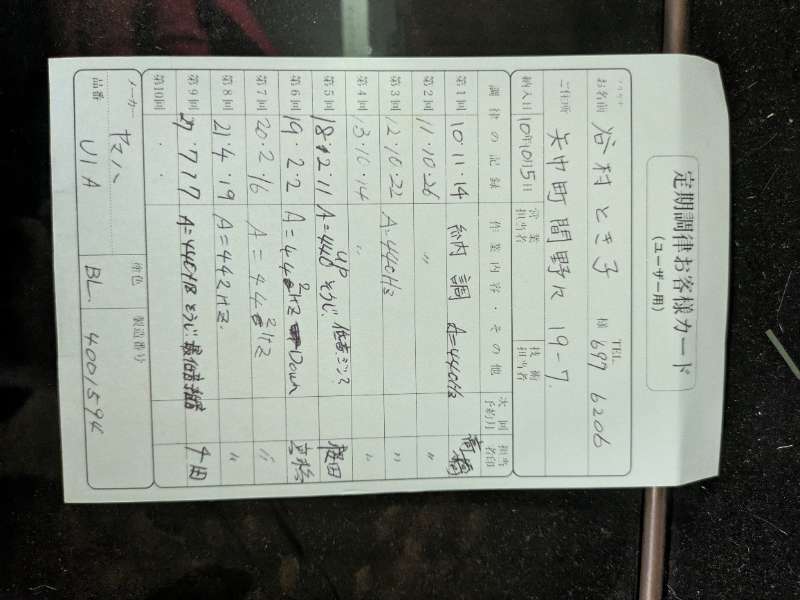 定期調律お客様カード
(ユーザー用)
フリガナ
お名前 谷村 とき子 様 TEL 697 6206
ご住所 矢中町間野々 19-7
納入日 10年10月5日 営業担当者 技術担当者
調律の記録 作業内容・その他 次回予約月 担当者名印
第1回 10・11・14 納調 A=440Hz 高橋
第2回 11・10・26 〃 〃
第3回 12・10・22 A=440Hz 〃
第4回 13・10・14 〃 〃
第5回 18・12・11 A=440 up そうじ
第6回 19・2・2 A=442Hz Down
第7回 20・2・16 A=442Hz 〃
第8回 21・4・19 A=442Hz. 〃
第9回 27・7・17 A=440HB そうじ
第10回 ・ ・
メーカー ヤマハ 塗色 製造番号
品番 U1A BL 400159K